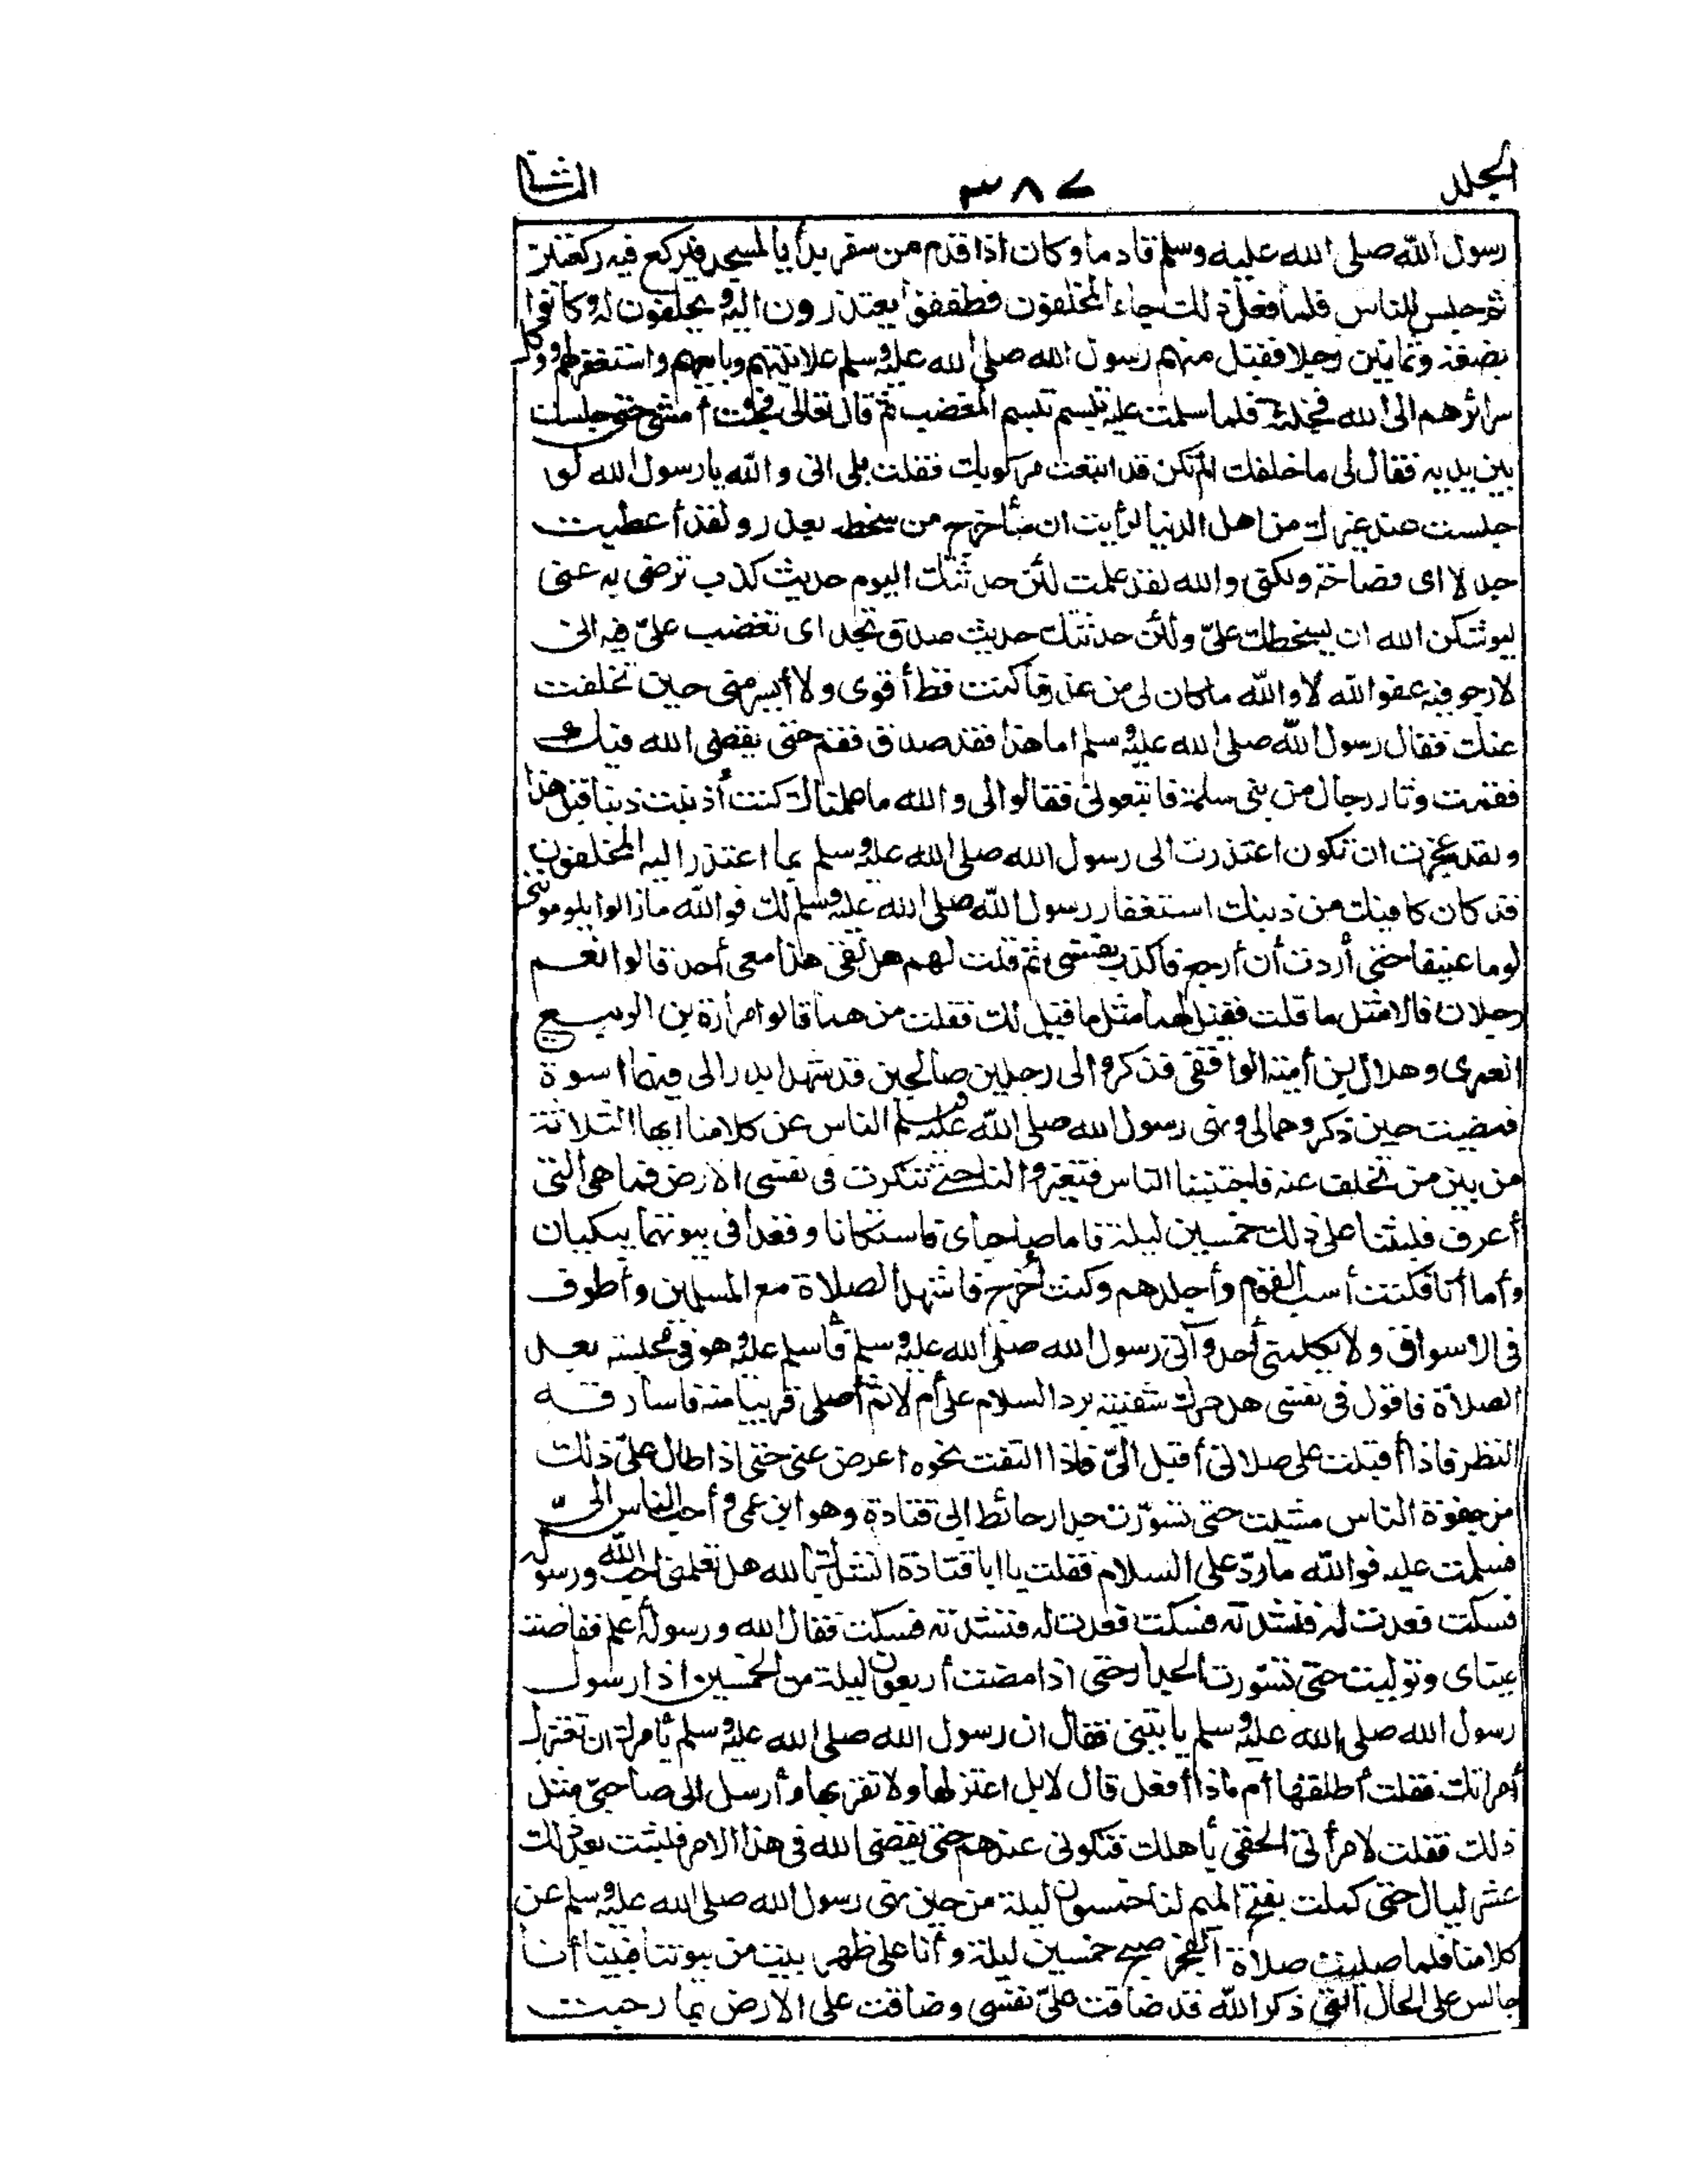 المجلد ٣٨٧ الثانى
رسول الله صلى الله عليه وسلم قادما وكان اذا قدم من سفر بدأ بالمسجد فيركع فيه ركعتين
ثم جلس للناس فلما فعل ذلك جاء المخلفون فطفقوا يعتذرون اليه ويحلفون له وكانوا
بضعة وثمانين رجلا فقبل منهم رسول الله صلى الله عليه وسلم علانيتهم وبايعهم واستغفر لهم ووكل
سرائرهم الى الله فجئته فلما سلمت عليه تبسم تبسم المغضب ثم قال تعالى فجئت أمشي حتى جلست
بين يديه فقال لى ما خلفك ألم تكن قد ابتعت مركوبك فقلت بلى انى والله يا رسول الله لو
جلست عند غيرك من اهل الدنيا لرأيت ان سأخرج من سخطه بعذر ولقد أعطيت
جدلا اى فصاحة ولكنى والله لقد علمت لئن حدثتك اليوم حديث كذب ترضى به عنى
ليوشكن الله ان يسخطك علىّ ولئن حدثتك حديث صدق تجد اى تغضب علىّ فيه انى
لارجو فيه عفو الله لا والله ما كان لى من عذر وما كنت قط أقوى ولا أيسر منى حين تخلفت
عنك فقال رسول الله صلى الله عليه وسلم اما هذا فقد صدق فقم حتى يقضى الله فيك
فقمت وثار رجال من بنى سلمة فاتبعونى فقالوا لى والله ما علمناك كنت أذنبت ذنبا قبل هذا
ولقد عجزت ان تكون اعتذرت الى رسول الله صلى الله عليه وسلم بما اعتذر اليه المخلفون
قد كان كافيك من ذنبك استغفار رسول الله صلى الله عليه وسلم لك فوالله ما زالوا يلومونى
لوما عنيفا حتى أردت أن أرجع فأكذب نفسى ثم قلت لهم هل لقى هذا معى أحد قالوا نعم
رجلان قالا مثل ما قلت فقيل لهما مثل ما قيل لك فقلت من هما قالوا مرارة بن الربيع
العمرى وهلال بن أمية الواقفى فذكروا لى رجلين صالحين قد شهدا بدرا لى فيهما اسوة
فمضيت حين ذكروهما لى ونهى رسول الله صلى الله عليه وسلم الناس عن كلامنا ايها الثلاثة
من بين من تخلف عنه فاجتنبنا الناس فتغيروا لنا حتى تنكرت فى نفسى الارض فما هى التى
أعرف فلبثنا على ذلك خمسين ليلة فاما صاحباى فاستكانا وقعدا فى بيوتهما يبكيان
وأما أنا فكنت أشب القوم وأجلدهم وكنت أخرج فاشهد الصلاة مع المسلمين وأطوف
فى الاسواق ولا يكلمنى أحد وآتى رسول الله صلى الله عليه وسلم فأسلم عليه وهو فى مجلسه بعد
الصلاة فاقول فى نفسى هل حرك شفتيه برد السلام على أم لا ثم أصلى قريبا منه فاسارقه
النظر فاذا أقبلت على صلاتى أقبل الىّ فاذا التفت نحوه اعرض عنى حتى اذا طال علىّ ذلك
من جفوة الناس مشيت حتى تسوّرت جدار حائط ابى قتادة وهو ابن عمى وأحب الناس الىّ
فسلمت عليه فوالله ما ردّ على السلام فقلت يا ابا قتادة انشدك بالله هل تعلمنى احب الله ورسوله
فسكت فعدت له فنشدته فسكت فعدت له فنشدته فسكت فقال الله ورسوله أعلم ففاضت
عيناى وتوليت حتى تسوّرت الجدار حتى اذا مضت أربعون ليلة من الخمسين اذا رسول
رسول الله صلى الله عليه وسلم يأتينى فقال ان رسول الله صلى الله عليه وسلم يأمرك ان تعتزل
أمرأتك فقلت أطلقها أم ماذا أفعل قال لا بل اعتزلها ولا تقربها وأرسل الى صاحبىّ مثل
ذلك فقلت لامرأتى الحقى بأهلك فتكونى عندهم حتى يقضى الله فى هذا الامر فلبثت بعد ذلك
عشر ليال حتى كملت بفتح الميم لنا خمسون ليلة من حين نهى رسول الله صلى الله عليه وسلم عن
كلامنا فلما صليت صلاة الفجر صبح خمسين ليلة وأنا على ظهر بيت من بيوتنا فبينا أنا
جالس على الحال التى ذكر الله قد ضاقت علىّ نفسى وضاقت على الارض بما رحبت